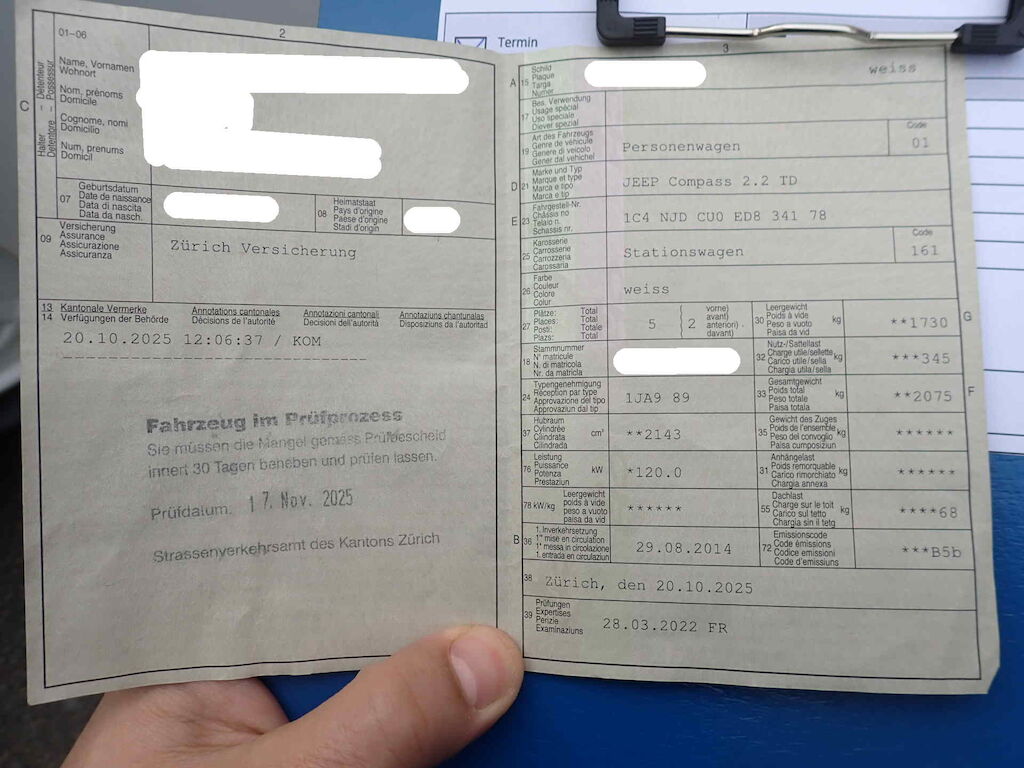 Termin
2
01-06
Halter Détenteur
Detentore Possessur
C
Name, Vornamen
Wohnort
Nom, prénoms
Domicile
Cognome, nomi
Domicilio
Num, prenums
Domicil
07
Geburtsdatum
Date de naissance
Data di nascita
Data da nasch.
08
Heimatstaat
Pays d'origine
Paese d'origine
Stadi d'origin
09
Versicherung
Assurance
Assicurazione
Assicuranza
Zürich Versicherung
13
14
Kantonale Vermerke
Verfügungen der Behörde
Annotations cantonales
Décisions de l'autorité
Annotazioni cantonali
Decisioni dell'autorità
Annotaziuns chantunalas
Disposiziuns da l'autoritad
20.10.2025 12:06:37 / KOM
Fahrzeug im Prüfprozess
Sie müssen die Mängel gemäss Prüfbescheid
innert 30 Tagen beheben und prüfen lassen.
Prüfdatum: 17. Nov. 2025
Strassenverkehrsamt des Kantons Zürich
3
A 15
Schild
Plaque
Targa
Numer
weiss
17
Bes. Verwendung
Usage spécial
Uso speciale
Diever spezial
19
Art des Fahrzeugs
Genre de véhicule
Genere di veicolo
Gener dal vehichel
Personenwagen
Code
01
D 21
Marke und Typ
Marque et type
Marca e tipo
Marca e tip
JEEP Compass 2.2 TD
E 23
Fahrgestell-Nr.
Châssis no
Telaio n.
Schassis nr.
1C4 NJD CU0 ED8 341 78
25
Karosserie
Carrosserie
Carrozzeria
Carossaria
Stationswagen
Code
161
26
Farbe
Couleur
Colore
Colur
weiss
27
Plätze: Total
Places: Total
Posti: Totale
Plazs: Total
5
2
vorne)
avant)
anteriori)
davant)
30
Leergewicht
Poids à vide
Peso a vuoto
Paisa da vid
kg
**1730
G
18
Stammnummer
N° matricule
N. di matricola
Nr. da matricla
32
Nutz-/Sattellast
Charge utile/sellette
Carico utile/sella
Chargia utila/sella
kg
***345
24
Typengenehmigung
Réception par type
Approvazione del tipo
Approvaziun dal tip
1JA9 89
33
Gesamtgewicht
Poids total
Peso totale
Paisa totala
kg
**2075
F
37
Hubraum
Cylindrée
Cilindrata
Cilindrada
cm³
**2143
35
Gewicht des Zuges
Poids de l'ensemble
Peso del convoglio
Paisa cumposiziun
kg
******
76
Leistung
Puissance
Potenza
Prestaziun
kW
*120.0
31
Anhängelast
Poids remorquable
Carico rimorchiato
Chargia annexa
kg
******
78 kW/kg
Leergewicht
poids à vide
peso a vuoto
paisa da vid
******
55
Dachlast
Charge sur le toit
Carico sul tetto
Chargia sin il tetg
kg
****68
B 36
1. Inverkehrsetzung
1re mise en circulation
1a messa in circolazione
1. entrada en circulaziun
29.08.2014
72
Emissionscode
Code émissions
Codice emissioni
Code d'emissiuns
***B5b
38
Zürich, den 20.10.2025
39
Prüfungen
Expertises
Perizie
Examinaziuns
28.03.2022 FR